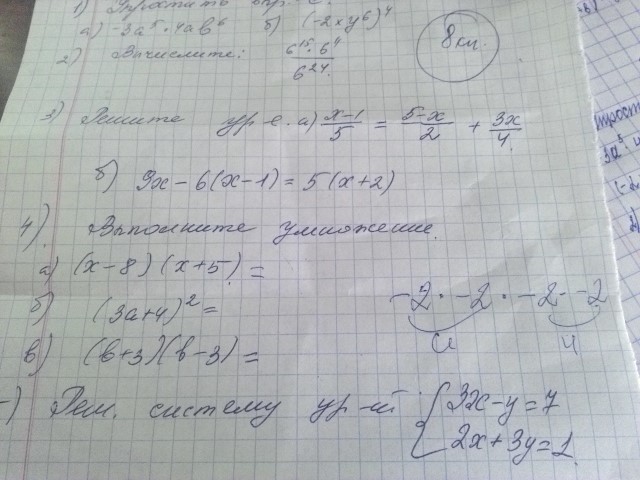 1) Упростить выр-е.
а) -3a⁵·4ab⁶ б) (-2xy⁶)⁴
2) Вычислите: 6¹⁵·6⁴/6²⁴
8 кл.
3) Решите ур-е. а) x-1/5 = 5-x/2 + 3x/4
б) 9x-6(x-1)=5(x+2)
4) Выполните умножение.
а) (x-8)(x+5)=
б) (3a+4)²=
в) (b+3)(b-3)=
-2·-2·-2·-2
4 4
-) Реш. систему ур-й {3x-y=7
2x+3y=1.